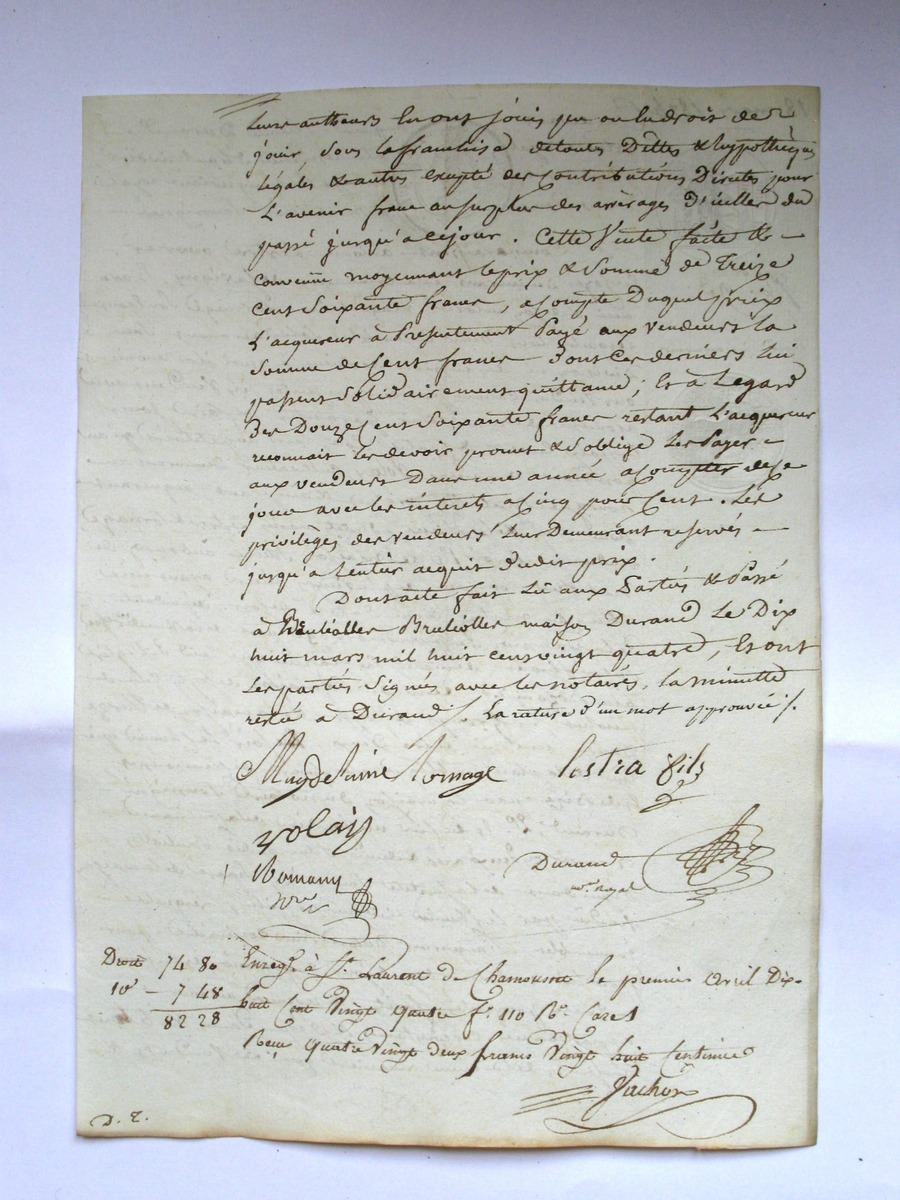 leurs autheurs en ont jouis pu ou eu droit de
jouir, sous la franchise de toutes Dettes & hypothèques
légales & autres excepté des Contributions Directes pour
L'avenir franc au surplus des arrèrages D'icelles du
passé jusqu'a ce jour. Cette Vente faite &
convenue moyennant le prix & Somme de Treize
Cent Soixante francs, a compte Duquel prix
L'acquereur à Présentement Payé aux vendeurs la
Somme de Cent francs Dont ces derniers lui
passent Solidairement quittance ; Et à Legard
Des Douze Cent Soixante francs restant L'acquereur
reconnait les devoir promet & s'oblige Les Payer
aux vendeurs Dans une année a Compter de ce
jour avec les interets a Cinq pour Cent. Les
privilèges des vendeurs Leur Demeurant reservés
jusqu'a Lentier acquit Dudit prix.
Dont acte fait Lû aux Parties & Passé
à Brulioles maison Durand Le Dix
huit mars mil huit cent vingt quatre, Et ont
Les parties Signés avec les notaires, la minutte
restée à Durand /. La rature d'un mot approuvée /.
Magdelaine Lornage Lestra fils
Volay
Durand
nre. royal
Romany
Nre
Droit 74 80
10e - 7 48
82 28
Enregé. à St. Laurent de Chamousset le premier avril Dix-
huit Cent Vingt quatre fo. 110 Ro. Case 1
Reçu quatre Vingt deux francs Vingt huit Centimes
Vachon
D. T.